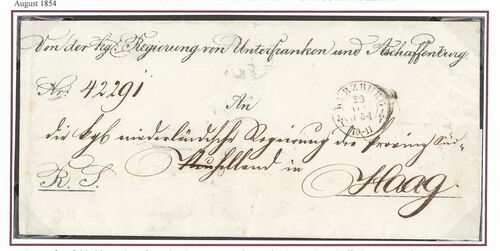 August 1854
Von der kgl. Regierung von Unterfranken und Aschaffenburg.
Nr. 42291
An
WÜRZBURG
die kgl. niederländische Regierung der Provinz Süd-
holland in
Haag.
R. S.